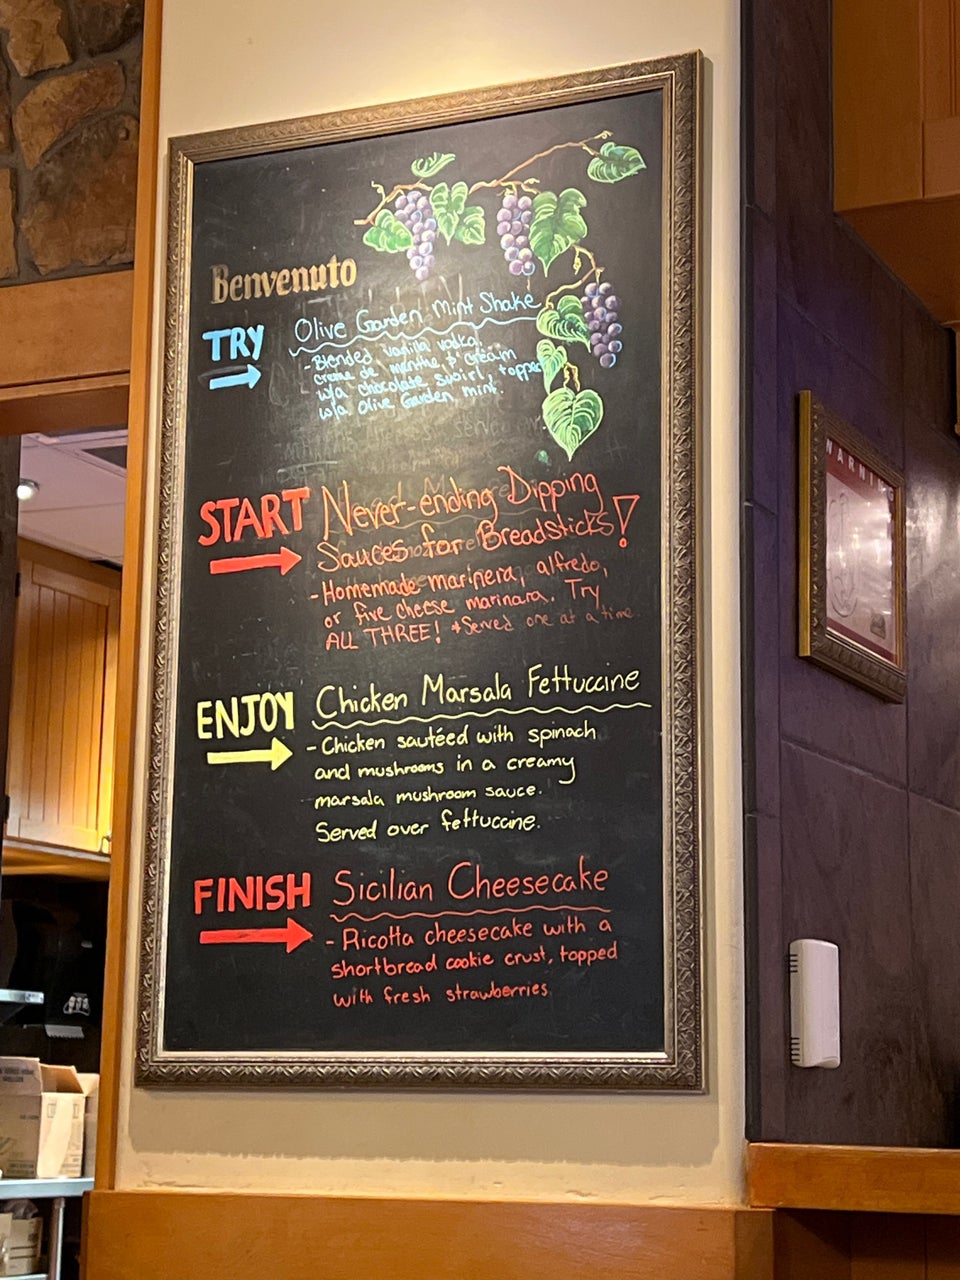 Benvenuto
TRY
Olive Garden Mint Shake
- Blended vanilla vodka,
creme de menthe, & cream
w/a chocolate swirl, topped
w/a Olive Garden mint.
START
Never-ending Dipping
Sauces for Breadsticks!
- Homemade marinera, alfredo,
or five cheese marinara. Try
ALL THREE! *Served one at a time.
ENJOY
Chicken Marsala Fettuccine
- Chicken sautéed with spinach
and mushrooms in a creamy
marsala mushroom sauce.
Served over fettuccine.
FINISH
Sicilian Cheesecake
- Ricotta cheesecake with a
shortbread cookie crust, topped
with fresh strawberries.
WARNING